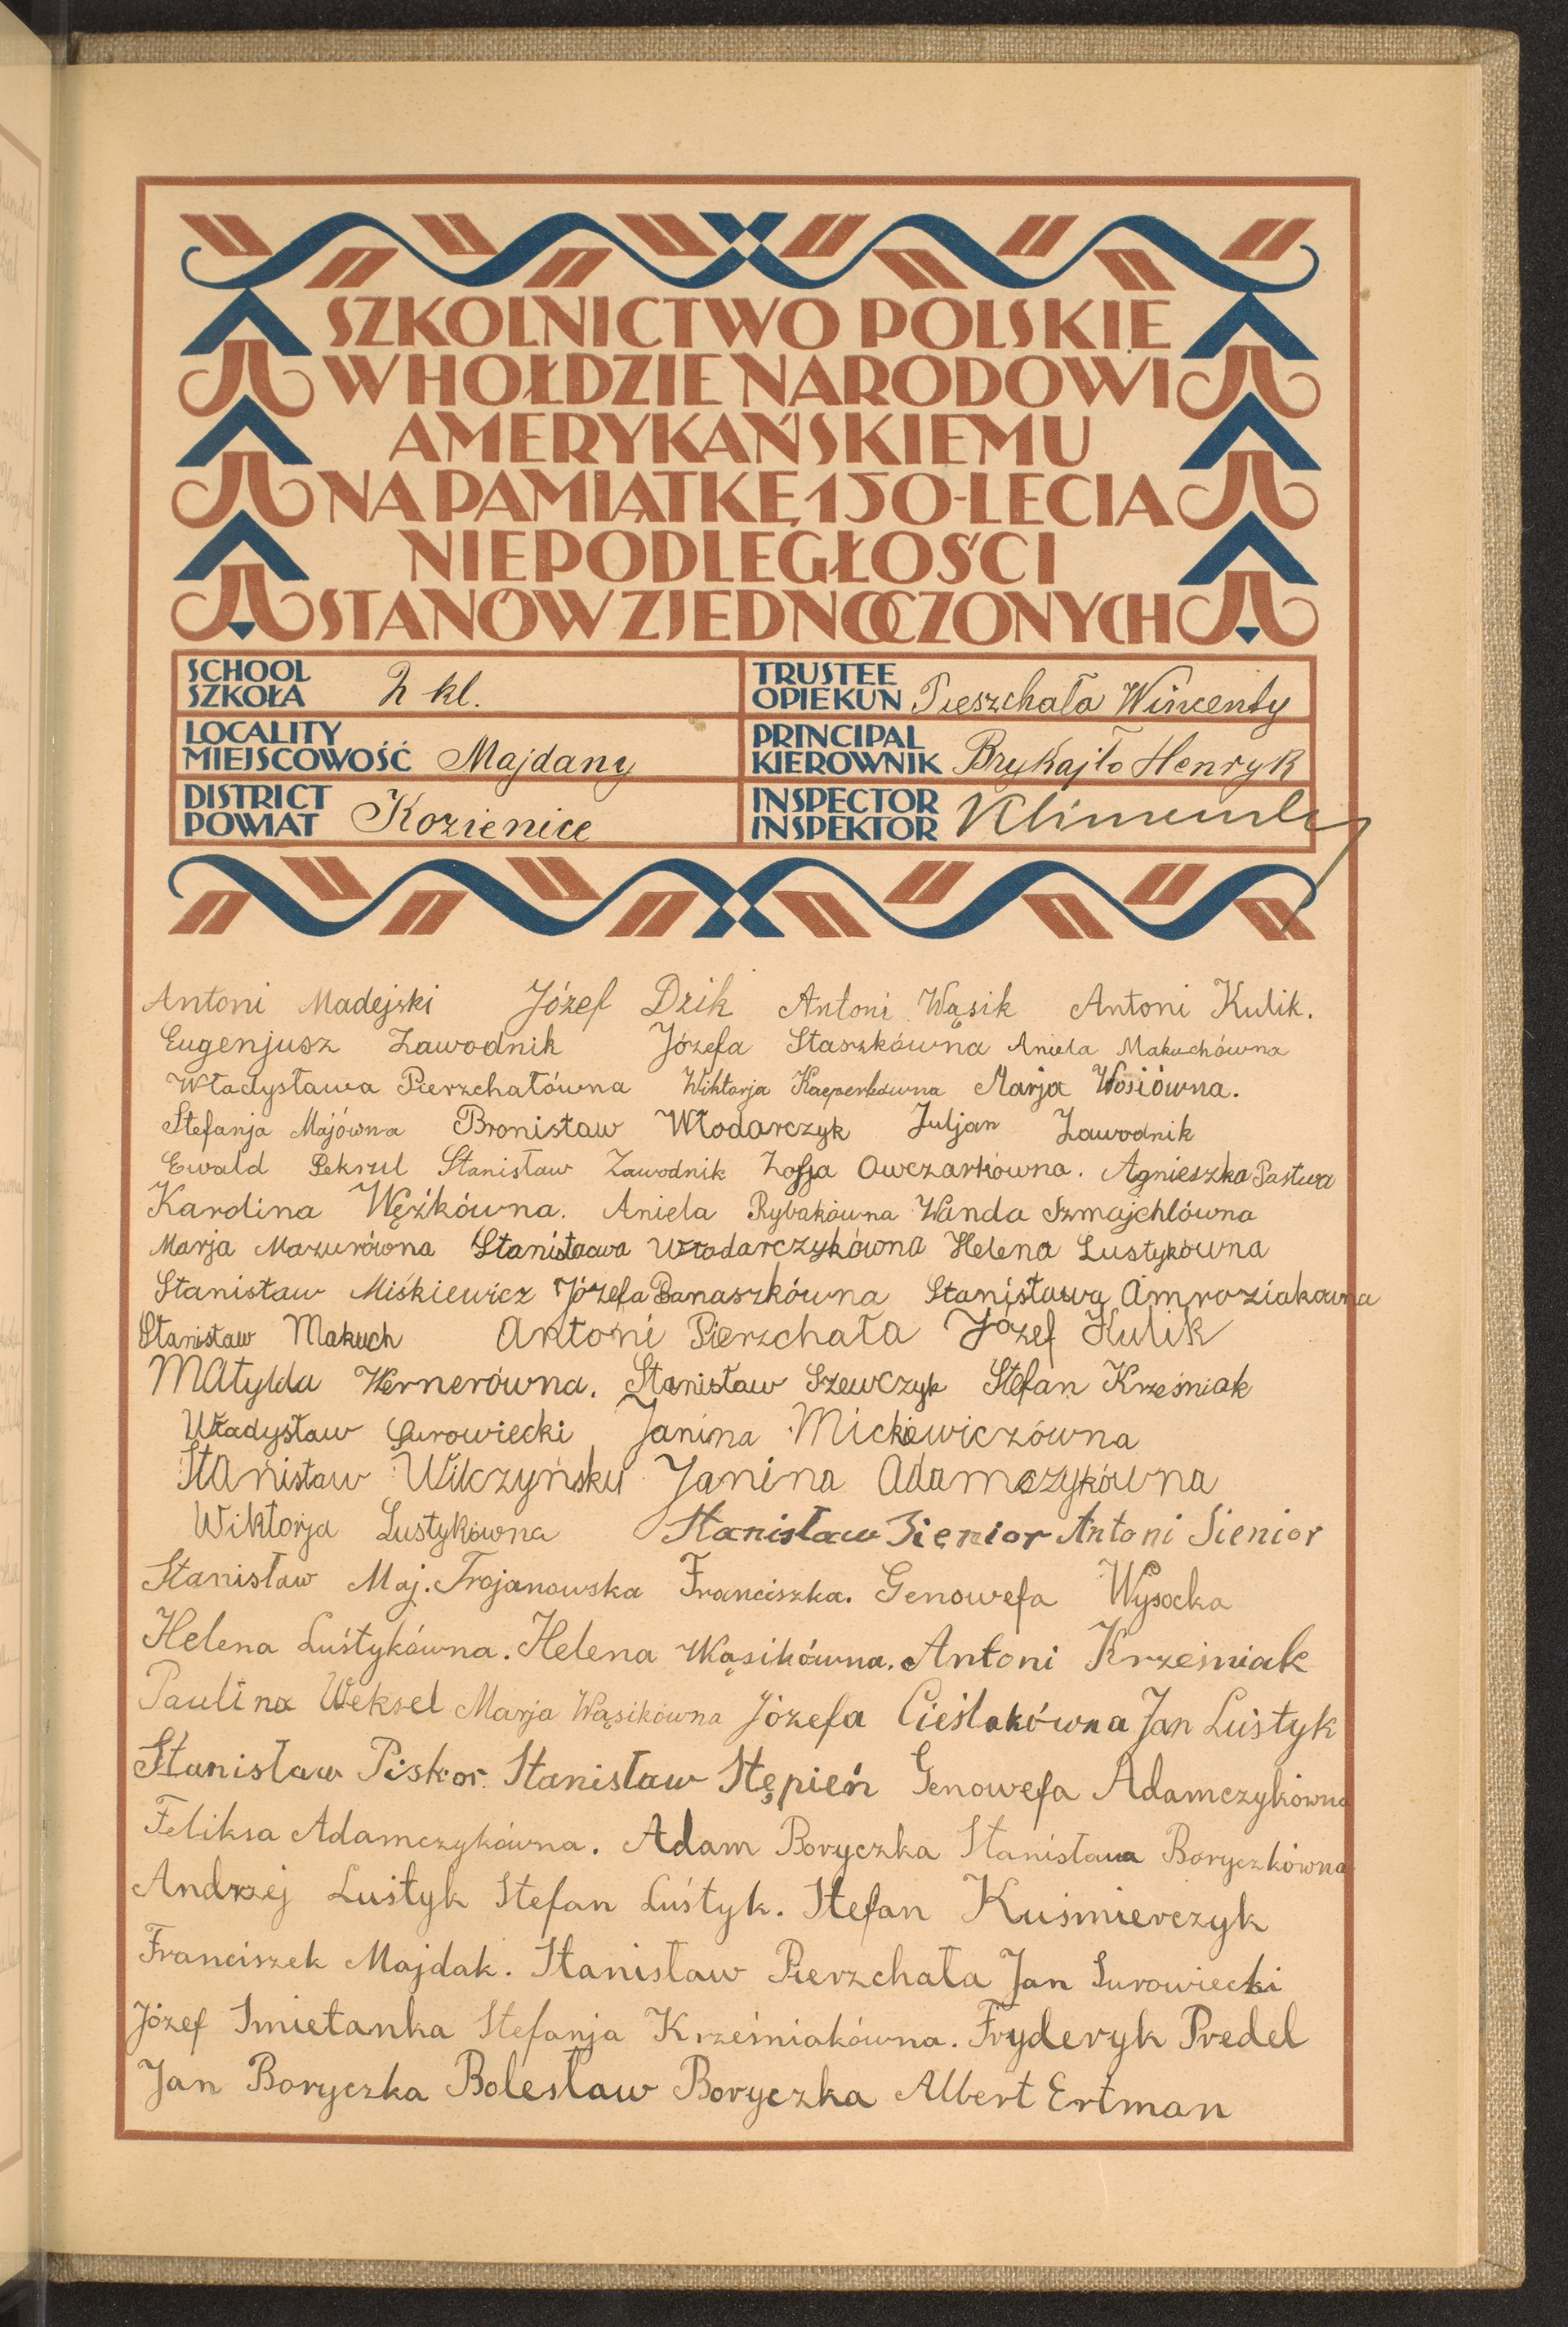 SZKOLNICTWO POLSKIE
W HOŁDZIE NARODOWI
AMERYKAŃSKIEMU
NA PAMIĄTKĘ 150-LECIA
NIEPODLEGŁOŚCI
STANÓW ZJEDNOCZONYCH
SCHOOL
SZKOŁA 2 kl.
TRUSTEE
OPIEKUN Pieszchała Wincenty
LOCALITY
MIEJSCOWOŚĆ Majdany
PRINCIPAL
KIEROWNIK Brykajło Henryk
DISTRICT
POWIAT Kozienice
INSPECTOR
INSPEKTOR
Antoni Madejski Józef Dzik Antoni Wąsik Antoni Kulik.
Eugenjusz Zawodnik Józefa Staszkówna Aniela Makuchówna
Władysława Pierzchałówna Wiktorja Kacperkówna Marja Wosiówna.
Stefanja Majówna Bronisław Włodarczyk Juljan Zawodnik
Ewald Pekrul Stanisław Zawodnik Zofja Owczarkówna. Agnieszka Pastwa
Karolina Wężkówna. Aniela Rybakówna Wanda Szmajchlówna
Marja Mazurówna Stanisława Włodarczykówna Helena Lustykówna
Stanisław Miśkiewicz Józefa Banaszkówna Stanisława Amroziakówna
Stanisław Makuch Antoni Pierzchała Józef Kulik
Matylda Wernerówna. Stanisław Szewczyk Stefan Krześniak
Władysław Surowiecki Janina Mickiewiczówna
Stanisław Wilczyński Janina Adamczykówna
Wiktorja Lustykówna Stanisław Sienior Antoni Sienior
Stanisław Maj. Trojanowska Franciszka. Genowefa Wysocka
Helena Luśtykówna. Helena Wąsikówna. Antoni Krześniak
Paulina Weksel Marja Wąsikówna Józefa Cieślakówna Jan Luśtyk
Stanisław Piskor. Stanisław Stępień Genowefa Adamczykówna
Feliksa Adamczykówna. Adam Boryczka Stanisława Boryczkówna
Andrzej Luśtyk Stefan Luśtyk. Stefan Kuśmierczyk
Franciszek Majdak. Stanisław Pierzchała Jan Surowiecki
Józef Smietanka Stefanja Krześniakówna. Fryderyk Predel
Jan Boryczka Bolesław Boryczka Albert Ertman